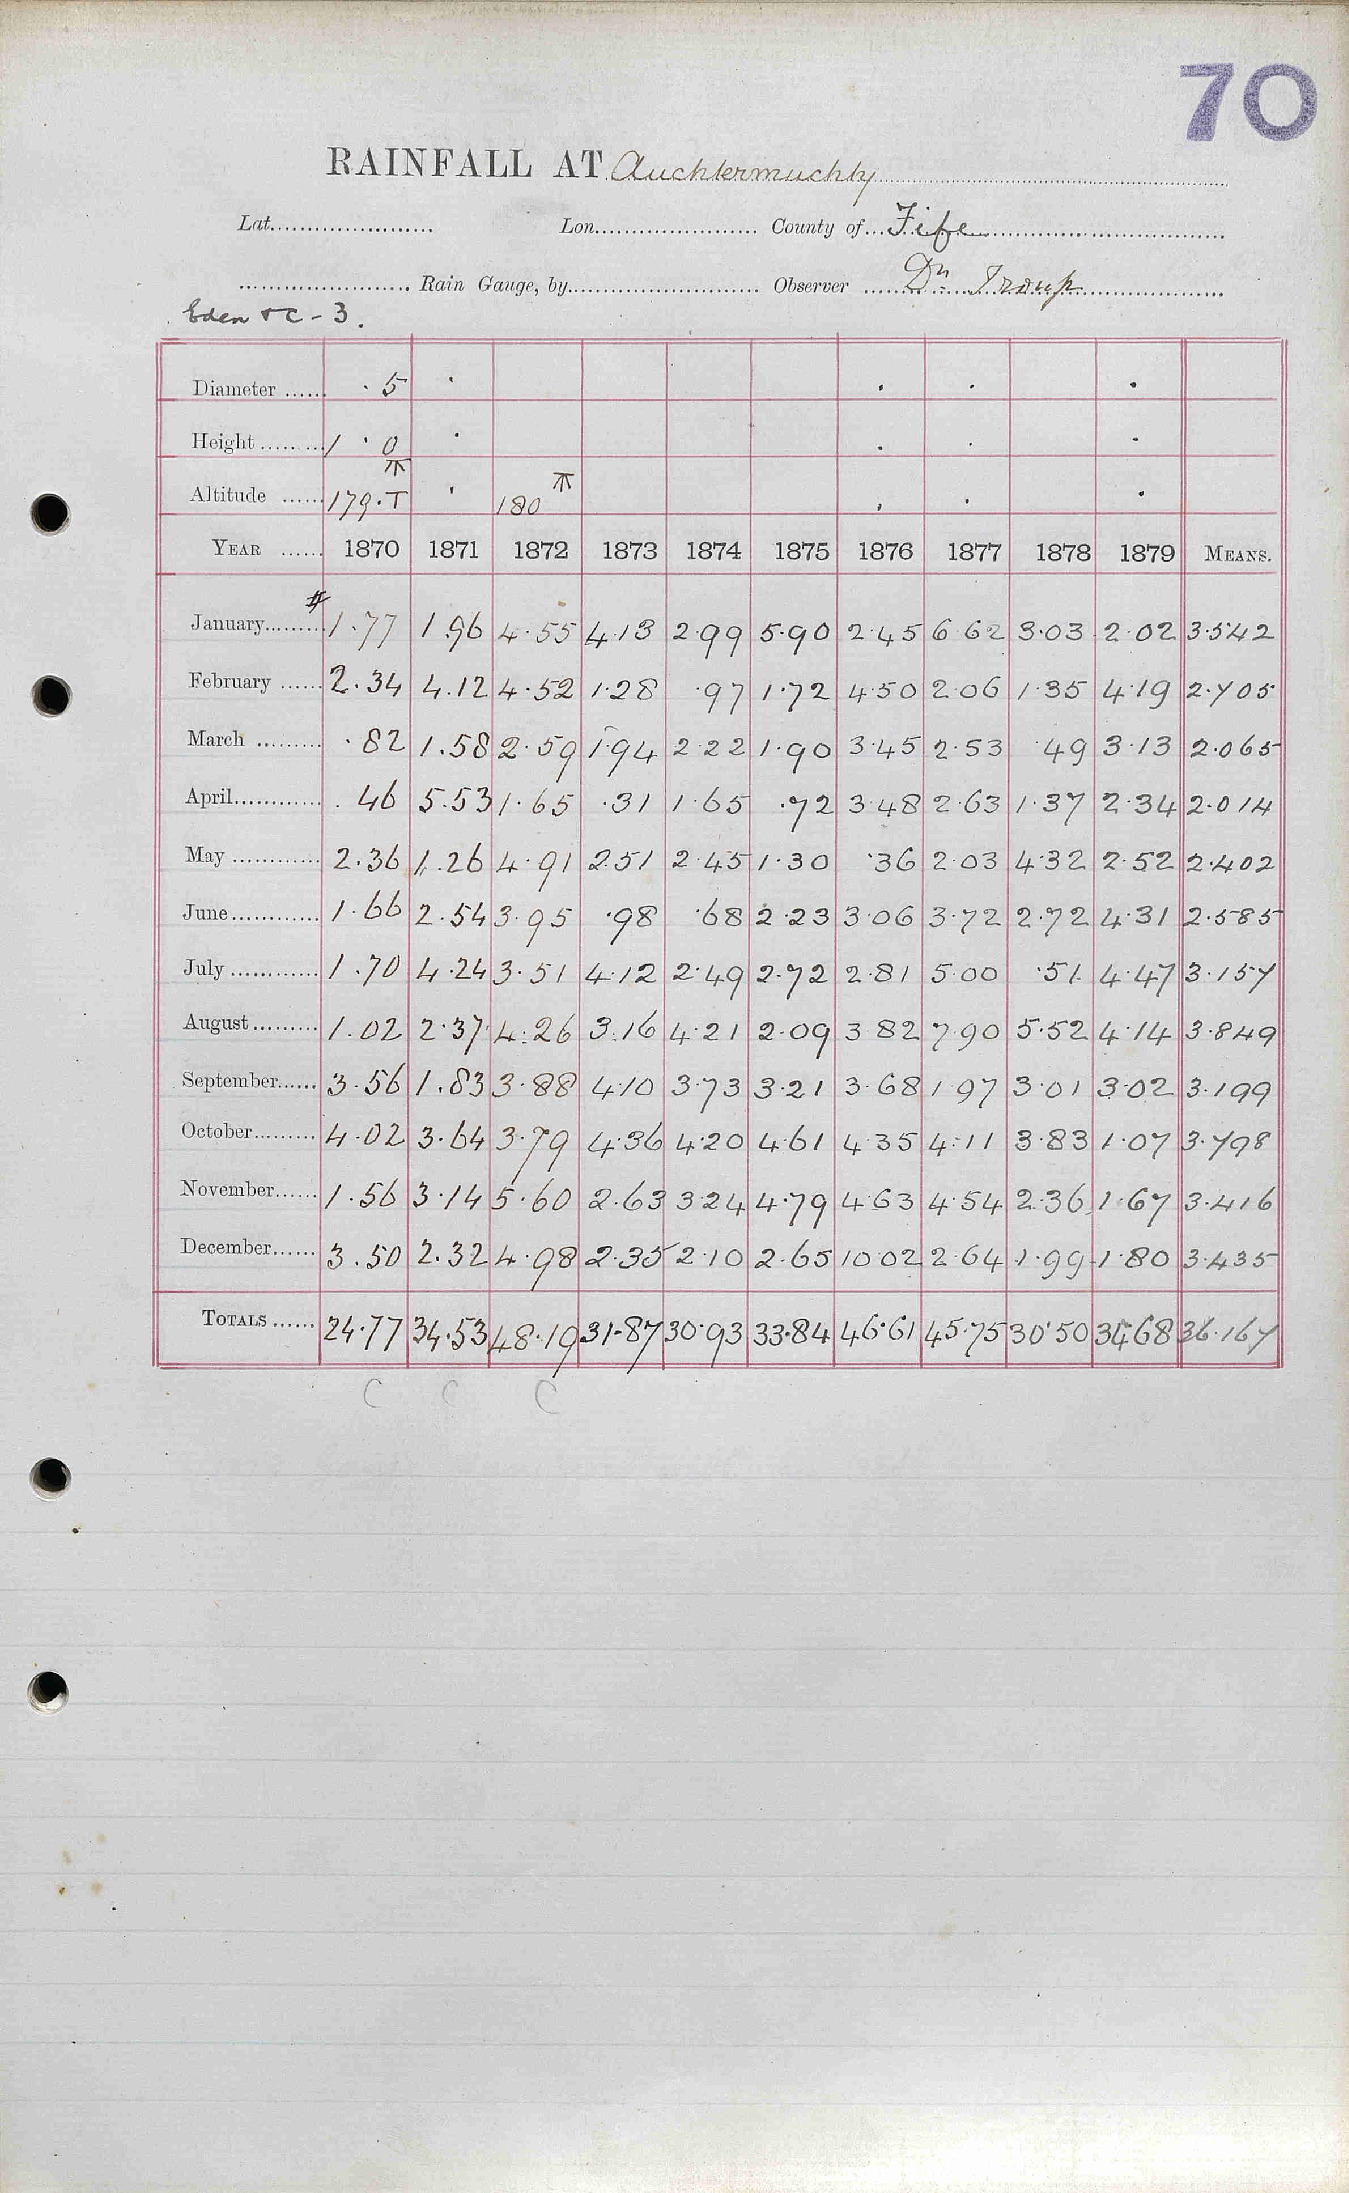 70
RAINFALL AT Auchtermuchty
Lat. Lon. County of Fife
Rain Gauge, by Observer Dr. Troup
Eden & C - 3.
Diameter ...... · 5 · · · ·
Height ......... 1 · 0 · · · ·
Altitude ...... 179·T · 180 · · ·
YEAR ...... 1870 1871 1872 1873 1874 1875 1876 1877 1878 1879 MEANS.
January......... # 1.77 1.96 4.55 4.13 2.99 5.90 2.45 6.62 3.03 2.02 3.542
February ...... 2.34 4.12 4.52 1.28 .97 1.72 4.50 2.06 1.35 4.19 2.705
March ......... .82 1.58 2.59 1.94 2.22 1.90 3.45 2.53 .49 3.13 2.065
April............ .46 5.53 1.65 .31 1.65 .72 3.48 2.63 1.37 2.34 2.014
May ............ 2.36 1.26 4.91 2.51 2.45 1.30 .36 2.03 4.32 2.52 2.402
June............ 1.66 2.54 3.95 .98 .68 2.23 3.06 3.72 2.72 4.31 2.585
July ............ 1.70 4.24 3.51 4.12 2.49 2.72 2.81 5.00 .51 4.47 3.157
August......... 1.02 2.37 4.26 3.16 4.21 2.09 3.82 7.90 5.52 4.14 3.849
September...... 3.56 1.83 3.88 4.10 3.73 3.21 3.68 1.97 3.01 3.02 3.199
October......... 4.02 3.64 3.79 4.36 4.20 4.61 4.35 4.11 3.83 1.07 3.798
November...... 1.56 3.14 5.60 2.63 3.24 4.79 4.63 4.54 2.36 1.67 3.416
December...... 3.50 2.32 4.98 2.35 2.10 2.65 10.02 2.64 1.99 1.80 3.435
TOTALS ...... 24.77 34.53 48.19 31.87 30.93 33.84 46.61 45.75 30.50 34.68 36.167
C C C